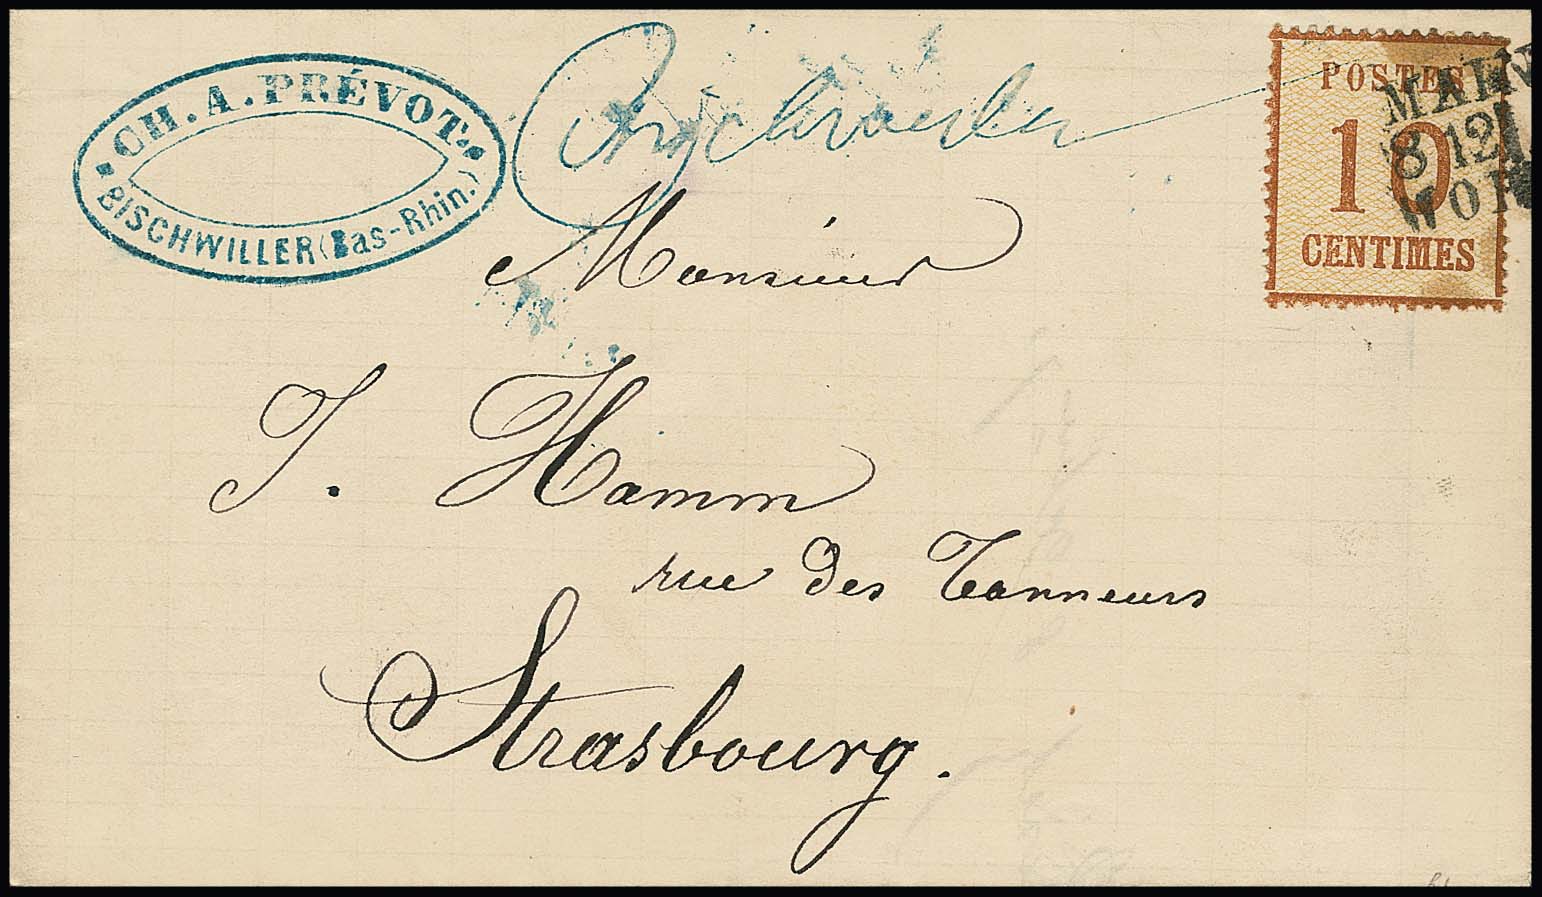 CH. A. PRÉVOT.
BISCHWILLER (Bas-Rhin.)
Bischweiler
POSTES
10
CENTIMES
8 12
Monsieur
J. Hamm
rue des Tanneurs
Strasbourg.